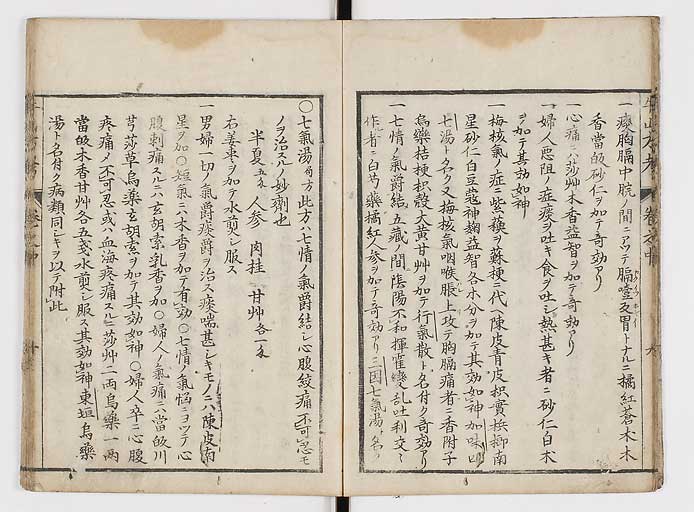 一痰胸膈中脘ノ間ニ在テ膈噎反胃トナルニ橘紅蒼木木
香當皈砂仁ヲ加テ奇効アリ
一心痛ニハ莎艸木香益智ヲ加テ奇効アリ
一婦人悪阻ノ症痰ヲ吐キ食ヲ吐シ熱甚キ者ニ砂仁白朮
ヲ加テ其効如神
一梅核氣ノ症ニ紫蘓ヲ蘓梗ニ代ヘ陳皮青皮枳實梹榔南
星砂仁白豆蔻神麹益智各木分ヲ加テ其効如神加味四
七湯ト名ク又梅核氣咽喉脹上攻テ胸膈痛者ニ香附子
烏藥桔梗枳殻大黄甘艸ヲ加テ行氣散ト名付ク奇効アリ
一七情ノ氣欝結五藏ノ間陰陽不和揮霍繚乱吐利交々
作者ニ白芍藥橘紅人参ヲ加テ奇効アリ三因七氣湯ト名ク
〇七氣湯局方此方ハ七情ノ氣欝結シ心腹絞痛不可忍モ
ノヲ治スルノ妙劑也
半夏五匁 人参 肉桂 甘艸各一匁
右姜枣ヲ加テ水煎シ服ス
一男婦一切ノ氣欝痰欝ヲ治ス痰喘甚シキモノニハ陳皮南
星ヲ加〇短氣ニハ木香ヲ加テ有効〇七情ノ氣悩ニヨツテ心
腹刺痛スルニハ玄胡索乳香ヲ加〇婦人ノ氣痛ニハ當皈川
芎莎草烏藥玄胡索ヲ加テ其効如神〇婦人卒ニ心腹
疼痛メ不可忍或ハ血海疼痛スルニ莎艸二両烏藥一両
當皈木香甘艸各五戔水煎シ服ス其効如神東垣烏藥
湯ト名付ク病類同シキヲ以テ附此